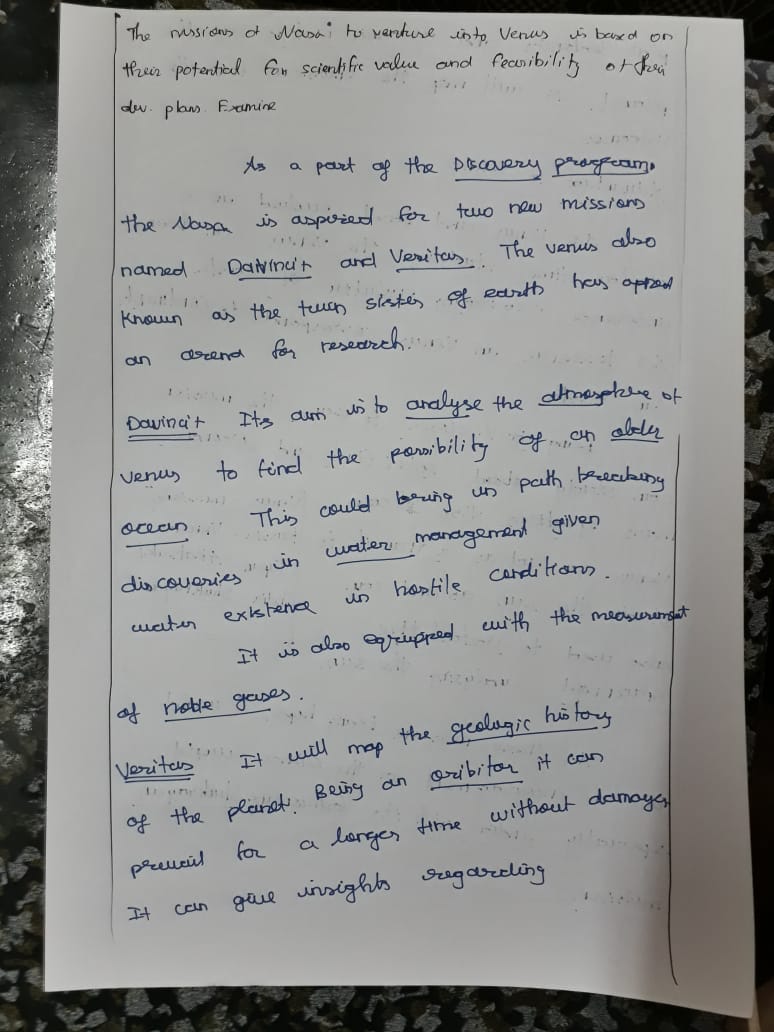 The missions of Nasa to venture into Venus is based on
their potential for scientific value and feasibility of their
dev. plans. Examine
As a part of the Discovery program,
the Nasa is aspired for two new missions
named Davinci+ and Veritas. The venus also
known as the twin sister of earth has opted
an arena for research.
Davinci+ Its aim is to analyse the atmosphere of
venus to find the possibility of an older
ocean. This could bring in path breaking
discoveries in water management given
water existence in hostile conditions.
It is also equipped with the measurement
of noble gases.
Veritas It will map the geologic history
of the planet. Being an oribitor it can
prevail for a longer time without damage,
It can give insights regarding